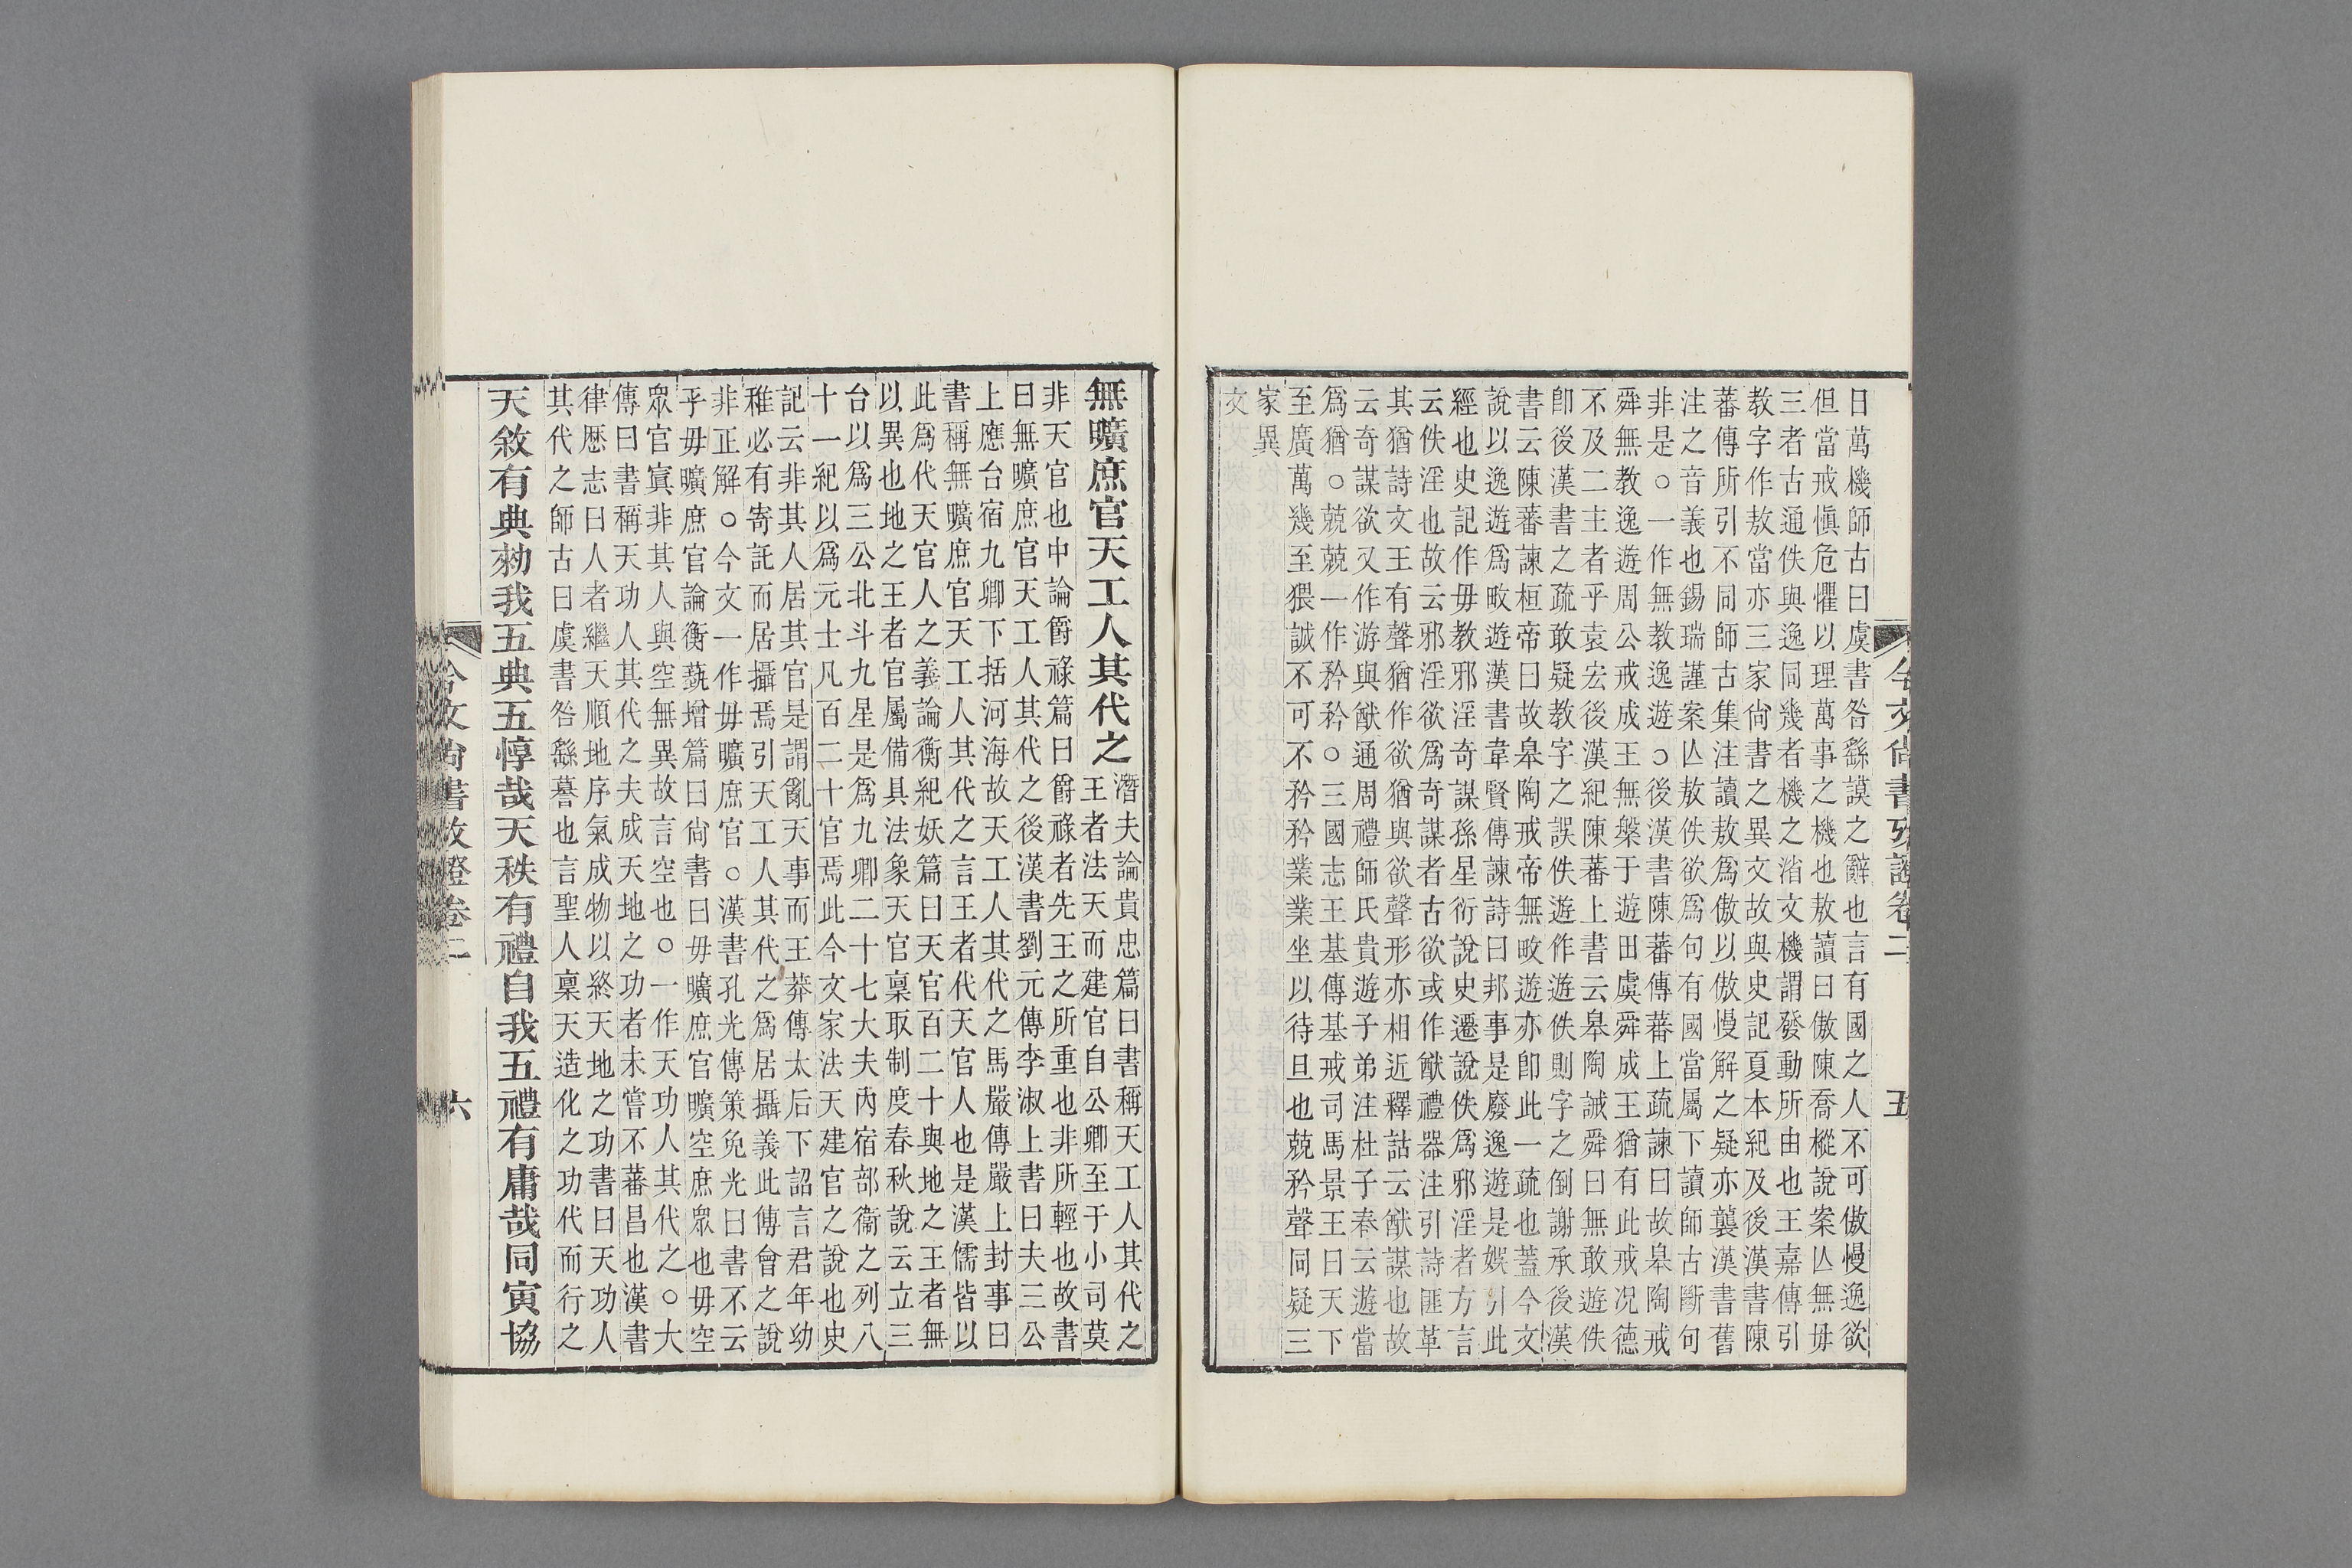 今文尚書攷證卷二
五
日萬機師古曰虞書咎繇謨之辭也言有國之人不可傲慢逸欲
但當戒愼危懼以理萬事之機也敖讀曰傲陳喬樅說案亾無毋
三者古通佚與逸同幾者機之渻文機謂發動所由也王嘉傳引
教字作敖當亦三家尙書之異文故與史記夏本紀及後漢書陳
蕃傳所引不同師古集注讀敖爲傲以傲慢解之疑亦襲漢書舊
注之音義也錫瑞謹案亾敖佚欲爲句有國當屬下讀師古斷句
非是○一作無教逸遊○後漢書陳蕃傳蕃上疏諫曰故皋陶戒
舜無教逸遊周公戒成王無槃于遊田虞舜成王猶有此戒况德
不及二主者乎袁宏後漢紀陳蕃上書云皋陶誡舜曰無敢遊佚
卽後漢書之疏敢疑教字之誤佚遊作遊佚則字之倒謝承後漢
書云陳蕃諫桓帝曰故皋陶戒帝無畋遊亦卽此一疏也蓋今文
說以逸遊爲畋遊漢書韋賢傳諫詩曰邦事是廢逸遊是娛引此
經也史記作毋教邪淫奇謀孫星衍說史遷說佚爲邪淫者方言
云佚淫也故云邪淫欲爲奇謀者古欲或作猷禮器注引詩匪革
其猶詩文王有聲猶作欲猶與欲聲形亦相近釋詁云猷謀也故
云奇謀欲又作游與猷通周禮師氏貴遊子弟注杜子春云遊當
爲猶○兢兢一作矜矜○三國志王基傳基戒司馬景王曰天下
至廣萬幾至猥誠不可不矜矜業業坐以待旦也兢矜聲同疑三
家異
文
無曠庶官天工人其代之潛夫論貴忠篇曰書稱天工人其代之
王者法天而建官自公卿至于小司莫
非天官也中論爵祿篇曰爵祿者先王之所重也非所輕也故書
曰無曠庶官天工人其代之後漢書劉元傳李淑上書曰夫三公
上應台宿九卿下括河海故天工人其代之馬嚴傳嚴上封事曰
書稱無曠庶官天工人其代之言王者代天官人也是漢儒皆以
此爲代天官人之義論衡紀妖篇曰天官百二十與地之王者無
以異也地之王者官屬備具法象天官稟取制度春秋說云立三
台以爲三公北斗九星是爲九卿二十七大夫內宿部衞之列八
十一紀以爲元士凡百二十官焉此今文家法天建官之說也史
記云非其人居其官是謂亂天事而王莽傳太后下詔言君年幼
稚必有寄託而居攝焉引天工人其代之爲居攝義此傅會之說
非正解○今文一作毋曠庶官○漢書孔光傳策免光曰書不云
乎毋曠庶官論衡蓺增篇曰尙書曰毋曠庶官曠空庶眾也毋空
眾官窴非其人與空無異故言空也○一作天功人其代之○大
傳曰書稱天功人其代之夫成天地之功者未嘗不蕃昌也漢書
律厯志曰人者繼天順地序氣成物以終天地之功書曰天功人
其代之師古曰虞書咎繇謩也言聖人稟天造化之功代而行之
天敘有典勑我五典五惇哉天秩有禮自我五禮有庸哉同寅協
今文尚書攷證卷二
六